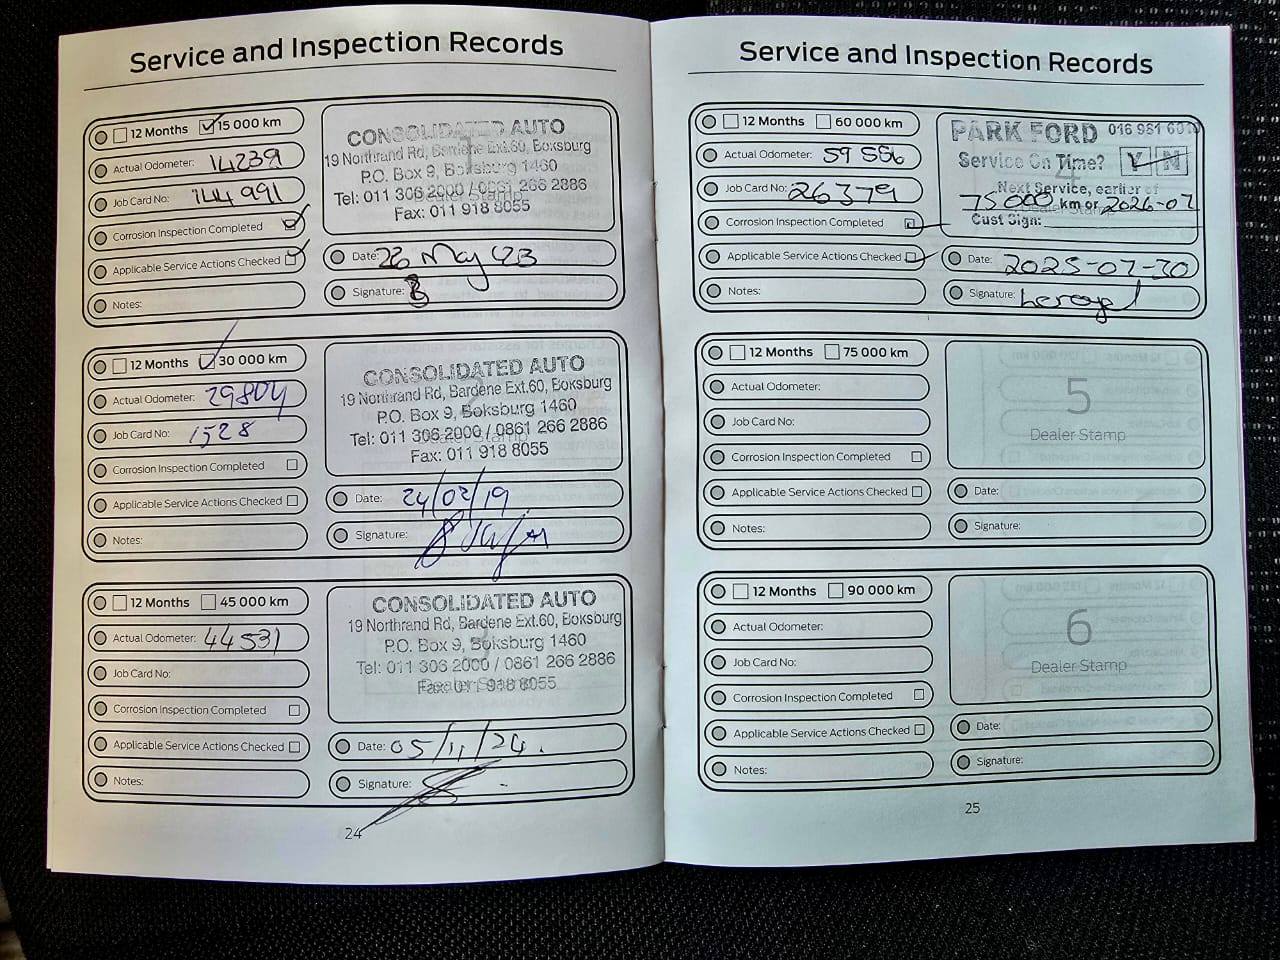 Service and Inspection Records
12 Months 15 000 km
Actual Odometer: 14239
Job Card No: 144 991
Corrosion Inspection Completed
Applicable Service Actions Checked
Notes:
CONSOLIDATED AUTO
19 Northrand Rd, Bardene Ext.60, Boksburg
P.O. Box 9, Boksburg 1460
Tel: 011 306 2000 / 0861 266 2886
Fax: 011 918 8055
Date: May
Signature:
12 Months 30 000 km
Actual Odometer: 29804
Job Card No: 1528
Corrosion Inspection Completed
Applicable Service Actions Checked
Notes:
CONSOLIDATED AUTO
19 Northrand Rd, Bardene Ext.60, Boksburg
P.O. Box 9, Boksburg 1460
Tel: 011 306 2000 / 0861 266 2886
Fax: 011 918 8055
Date: 24/02/19
Signature:
12 Months 45 000 km
Actual Odometer: 44531
Job Card No:
Corrosion Inspection Completed
Applicable Service Actions Checked
Notes:
CONSOLIDATED AUTO
19 Northrand Rd, Bardene Ext.60, Boksburg
P.O. Box 9, Boksburg 1460
Tel: 011 306 2000 / 0861 266 2886
Fax: 011 918 8055
Date: 05/11/24.
Signature:
24
Service and Inspection Records
12 Months 60 000 km
Actual Odometer: 59 556
Job Card No: 26379
Corrosion Inspection Completed
Applicable Service Actions Checked
Notes:
PARK FORD 016 981
Service On Time? Y N
Next Service, earlier of
75000 km or 2026-07
Cust Sign:
Date: 2025-07-30
Signature:
12 Months 75 000 km
Actual Odometer:
Job Card No:
Corrosion Inspection Completed
Applicable Service Actions Checked
Notes:
5
Dealer Stamp
Date:
Signature:
12 Months 90 000 km
Actual Odometer:
Job Card No:
Corrosion Inspection Completed
Applicable Service Actions Checked
Notes:
6
Dealer Stamp
Date:
Signature:
25